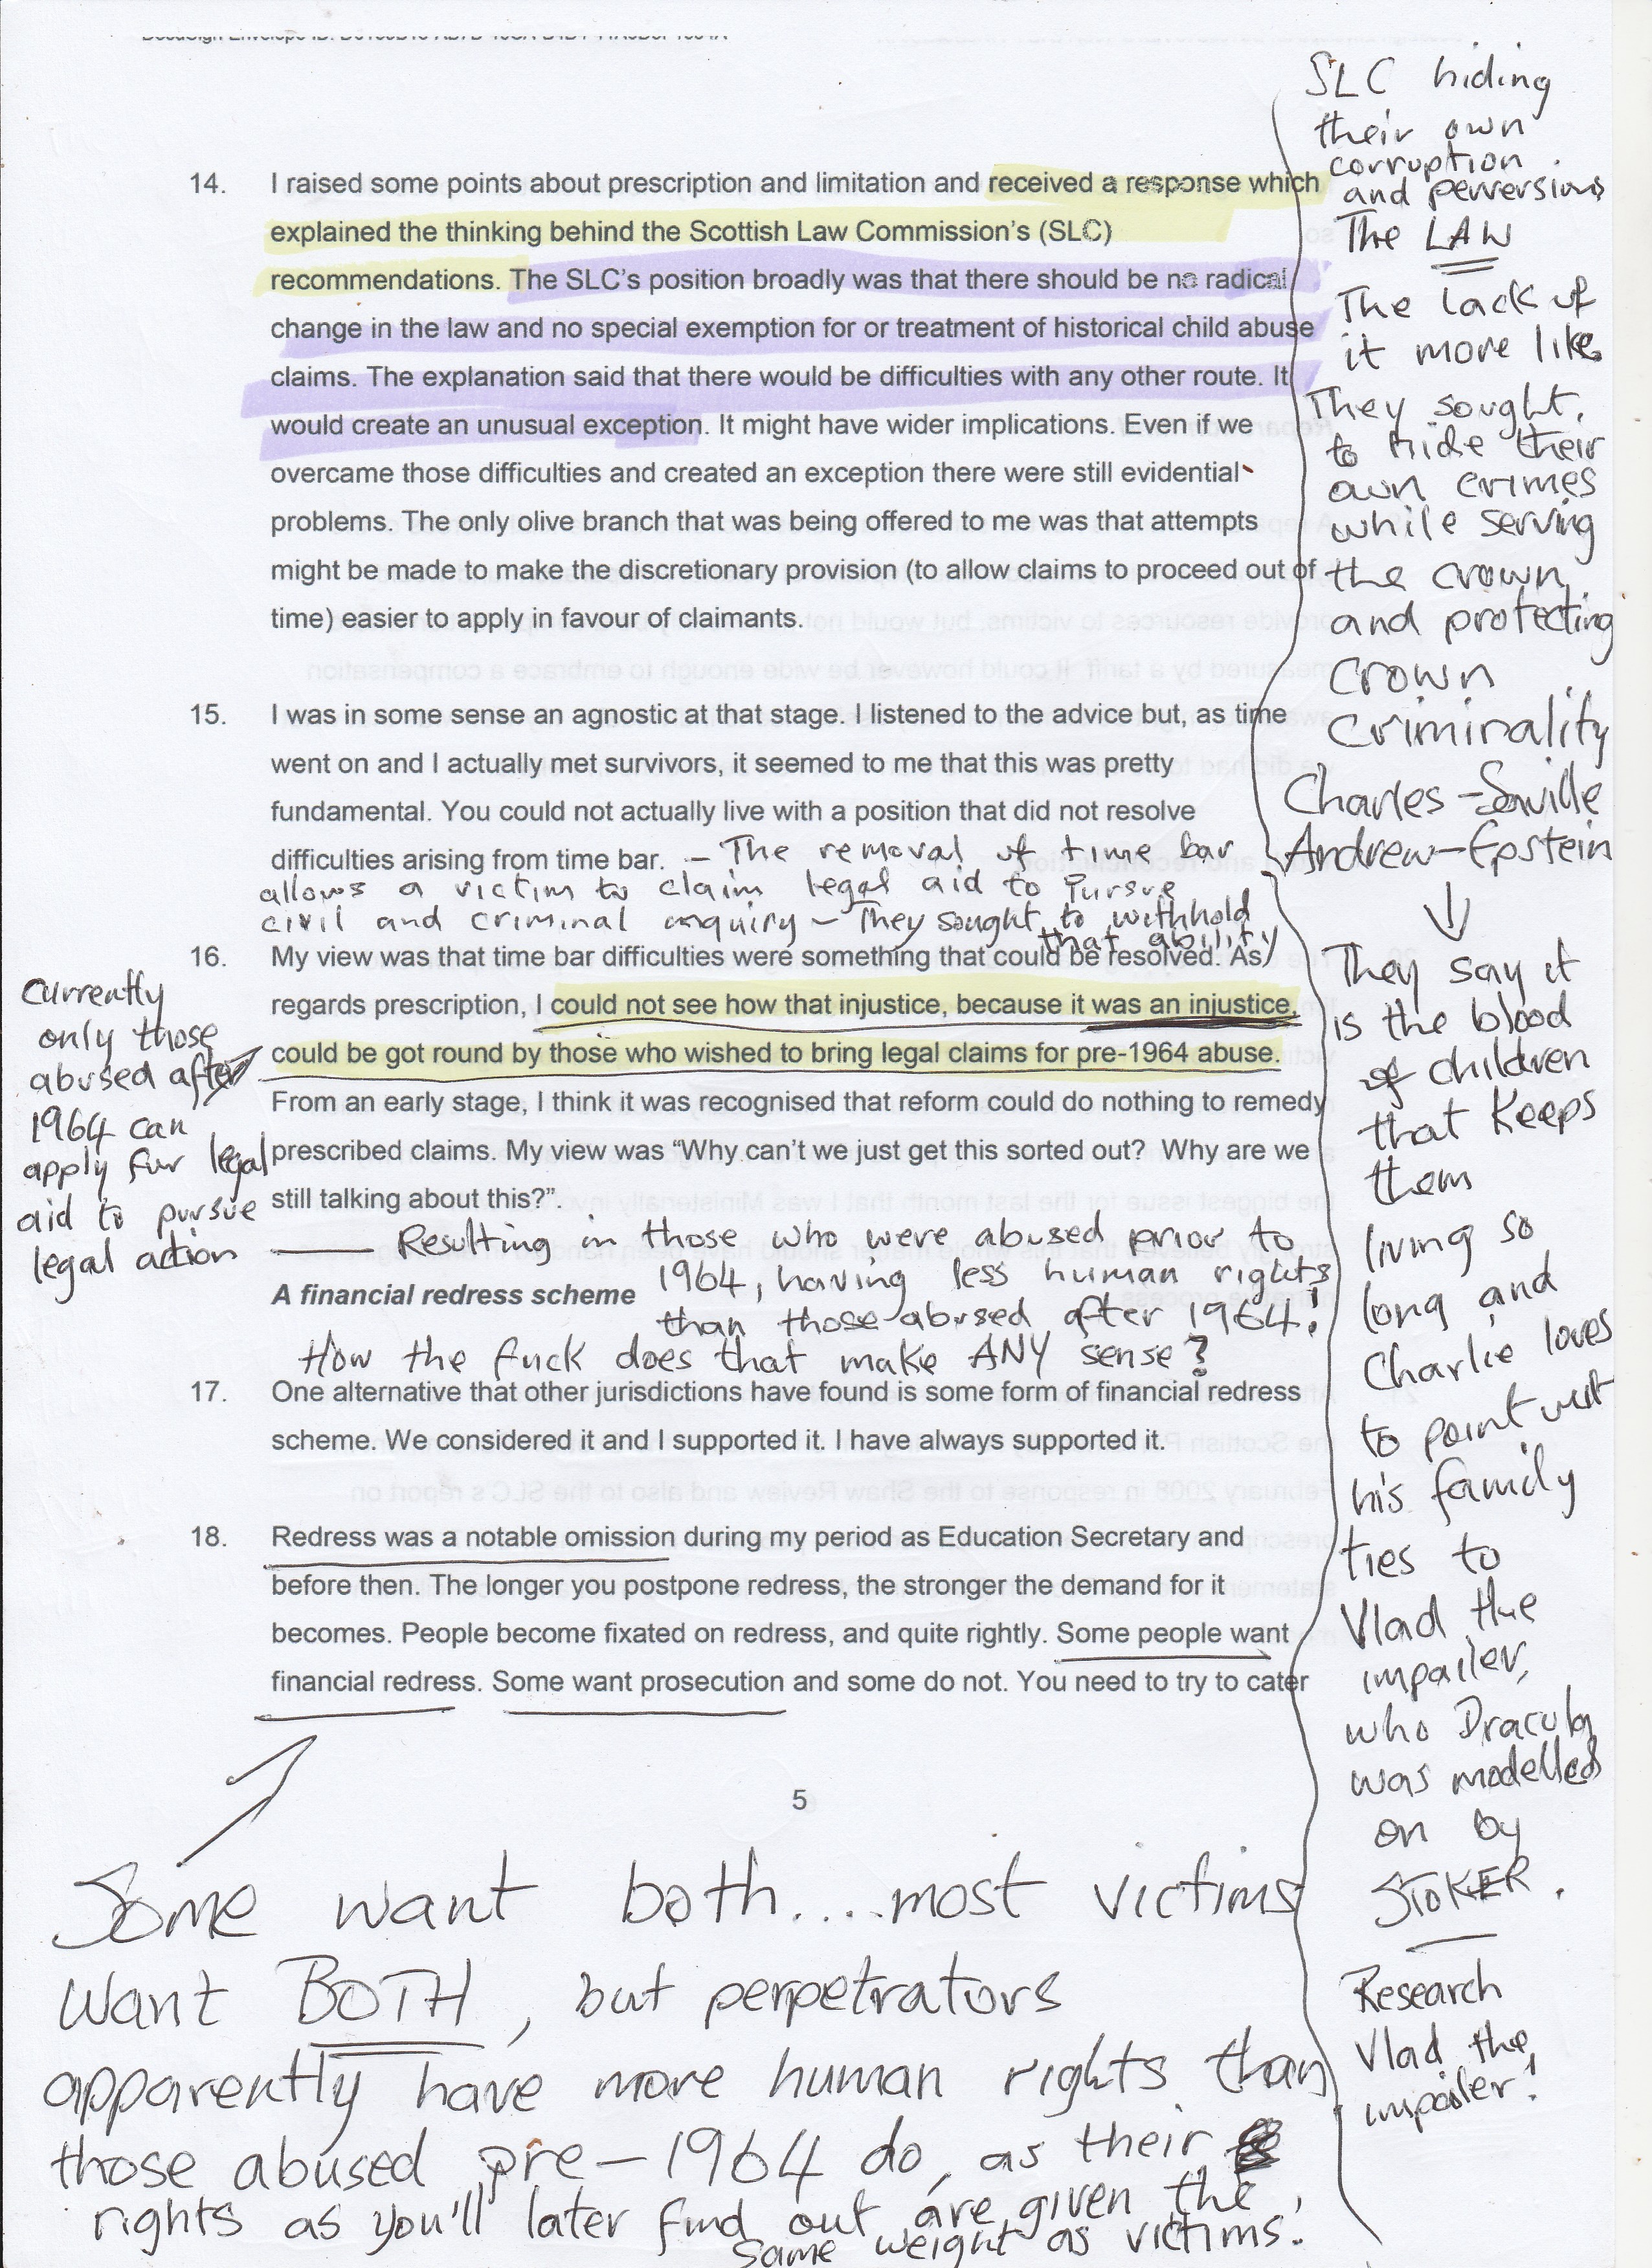 14. I raised some points about prescription and limitation and received a response which
explained the thinking behind the Scottish Law Commission's (SLC)
recommendations. The SLC's position broadly was that there should be no radical
change in the law and no special exemption for or treatment of historical child abuse
claims. The explanation said that there would be difficulties with any other route. It
would create an unusual exception. It might have wider implications. Even if we
overcame those difficulties and created an exception there were still evidential
problems. The only olive branch that was being offered to me was that attempts
might be made to make the discretionary provision (to allow claims to proceed out of
time) easier to apply in favour of claimants.
15. I was in some sense an agnostic at that stage. I listened to the advice but, as time
went on and I actually met survivors, it seemed to me that this was pretty
fundamental. You could not actually live with a position that did not resolve
difficulties arising from time bar. - The removal of time bar
allows a victim to claim legal aid to pursue
civil and criminal enquiry - They sought to withhold
that ability
16. My view was that time bar difficulties were something that could be resolved. As
regards prescription, I could not see how that injustice, because it was an injustice,
could be got round by those who wished to bring legal claims for pre-1964 abuse.
From an early stage, I think it was recognised that reform could do nothing to remedy
prescribed claims. My view was “Why can't we just get this sorted out? Why are we
still talking about this?”.
Currently
only those
abused after
1964 can
apply for legal
aid to pursue
legal action
Resulting in those who were abused prior to
1964, having less human rights
than those abused after 1964!
A financial redress scheme
How the fuck does that make ANY sense?
17. One alternative that other jurisdictions have found is some form of financial redress
scheme. We considered it and I supported it. I have always supported it.
18. Redress was a notable omission during my period as Education Secretary and
before then. The longer you postpone redress, the stronger the demand for it
becomes. People become fixated on redress, and quite rightly. Some people want
financial redress. Some want prosecution and some do not. You need to try to cater
5
Some want both.... most victims
want BOTH, but perpetrators
apparently have more human rights than
those abused pre-1964 do, as their
rights as you'll later find out are given the
same weight as victims!
SLC hiding
their own
corruption
and perversions
The LAW
The lack of
it more like.
They sought
to hide their
own crimes
while serving
the crown
and protecting
crown
criminality
Charles - Saville
Andrew - Epstein
They say it
is the blood
of children
that keeps
them
living so
long and
Charlie loves
to point out
his family
ties to
Vlad the
impailer,
who Dracula
was modelled
on by
STOKER.
Research
Vlad the
impailer!